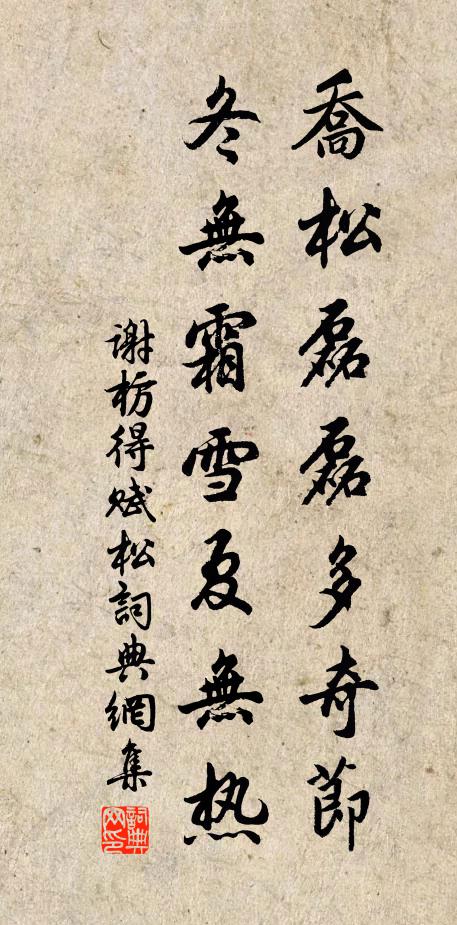 喬松磊磊多奇節
冬無霜雪夏無热
谢枋得赋松詞典網集
詞典网印